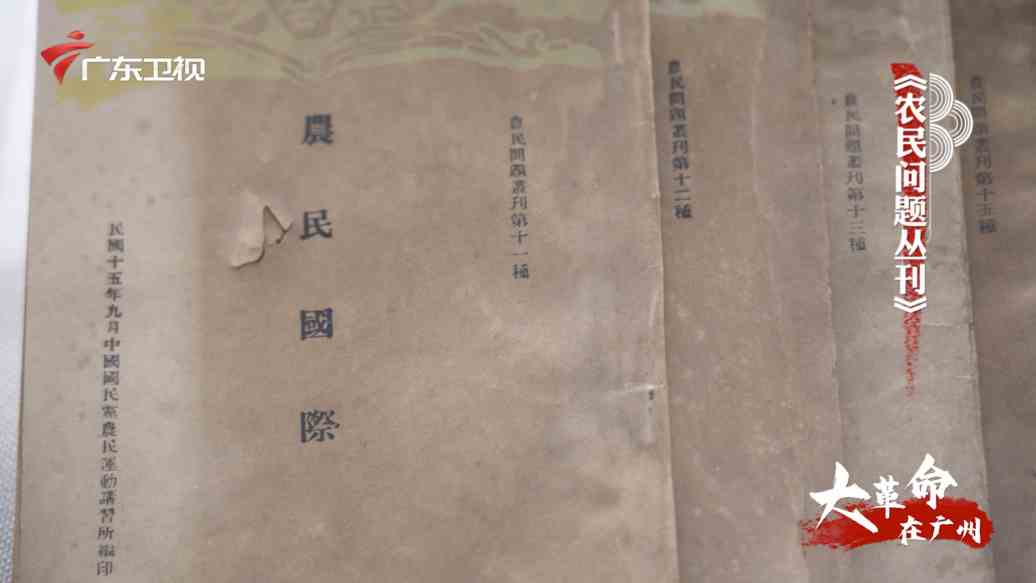 广东卫视
農民問題叢刊第十一種
農民國際
民國十五年九月中國國民黨農民運動講習所編印
農民問題叢刊第十二種
農民問題叢刊第十三種
農民問題叢刊第十五種
《农民问题丛刊》
大革命
在广州